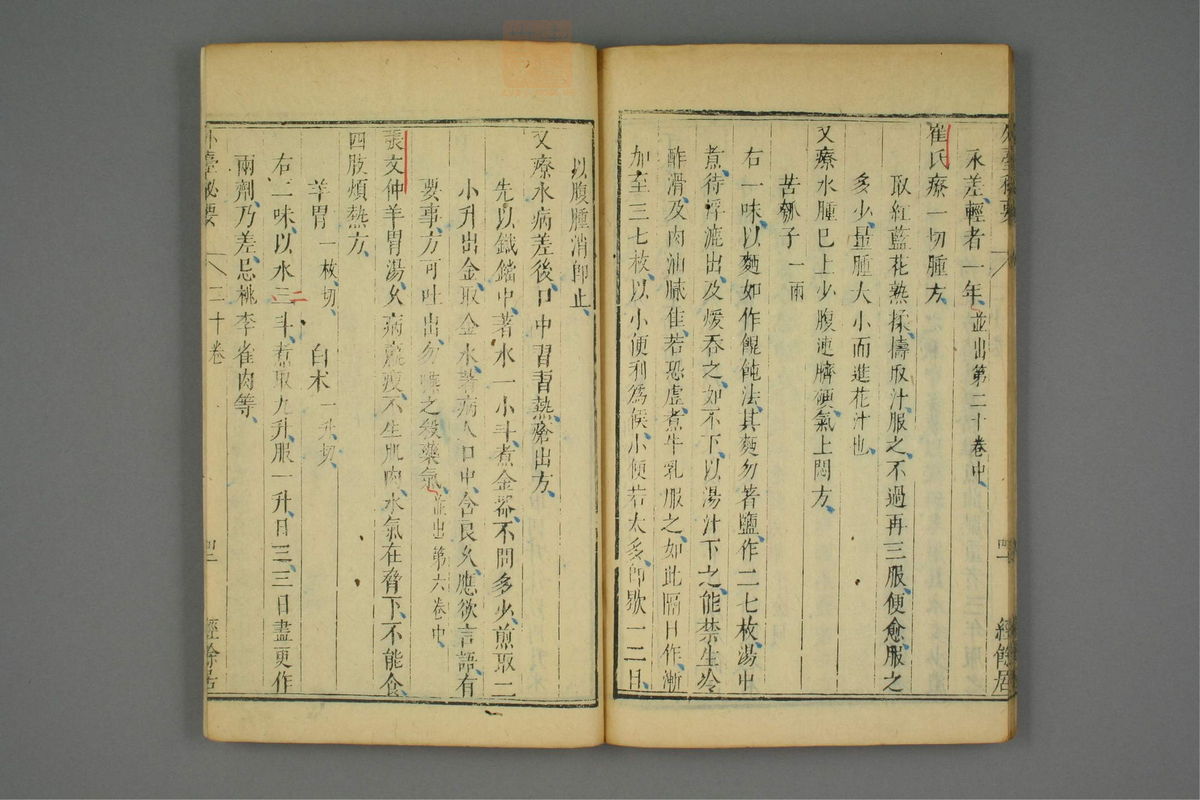 永差輕者一年並出第二十卷中
崔氏療一切腫方
取紅藍花熟揉擣取汁服之不過再三服便愈服之
多少量腫大小而進花汁也
又療水腫巳上少腹連臍硬氣上悶方
苦瓠子一兩
右一味以麪如作餛飩法其麪勿著鹽作二七枚湯中
煮待浮漉出及煖吞之如不下以湯汁下之能禁生冷
酢滑及肉油膩佳若恐虛煮牛乳服之如此隔日作漸
加至三七枚以小便利爲候小便若太多卽歇一二日
以腹腫消卽止
又療水病差後口中習習熱瘡出方
先以鐵鐺中著水一小斗煮金器不問多少煎取二
小升出金取金水著病人口中含良久應欲言語有
要事方可吐出勿嚥之殺藥氣並出第六卷中
張文仲羊胃湯久病羸瘦不生肌肉水氣在脅下不能食
四肢煩熱方
羊胃一枚切 白朮一升切
右二味以水二斗煮取九升服一升日三三日盡更作
兩劑乃差忌桃李雀肉等
外臺秘要 二十卷 經餘居